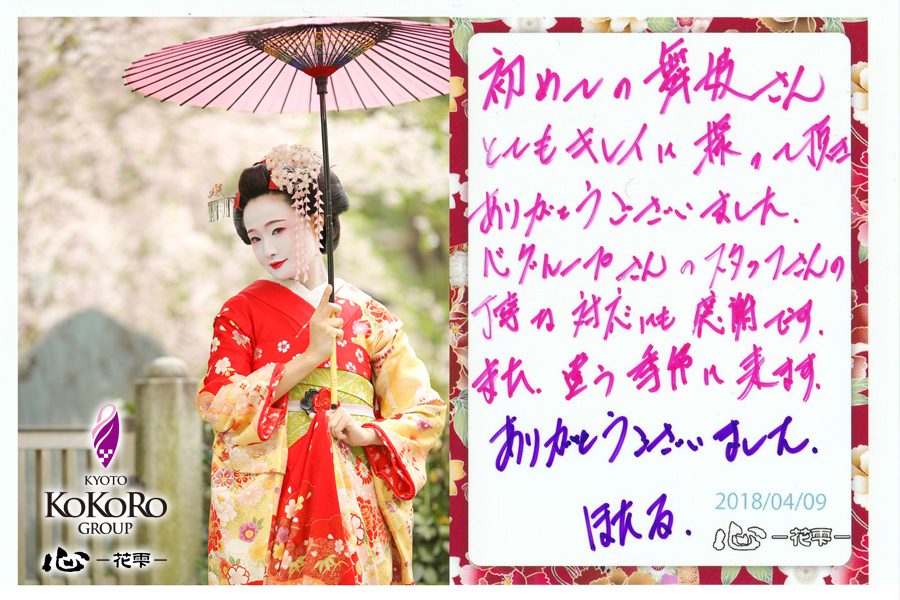 KYOTO
KoKoRo
GROUP
心 －花雫－
初めての舞妓さん
とてもキレイに撮って頂き
ありがとうございました.
心グループさんのスタッフさんの
丁寧な対応にも感謝です.
また.違う季節に来ます.
ありがとうございました.
ほたる.
2018/04/09
心 －花雫－